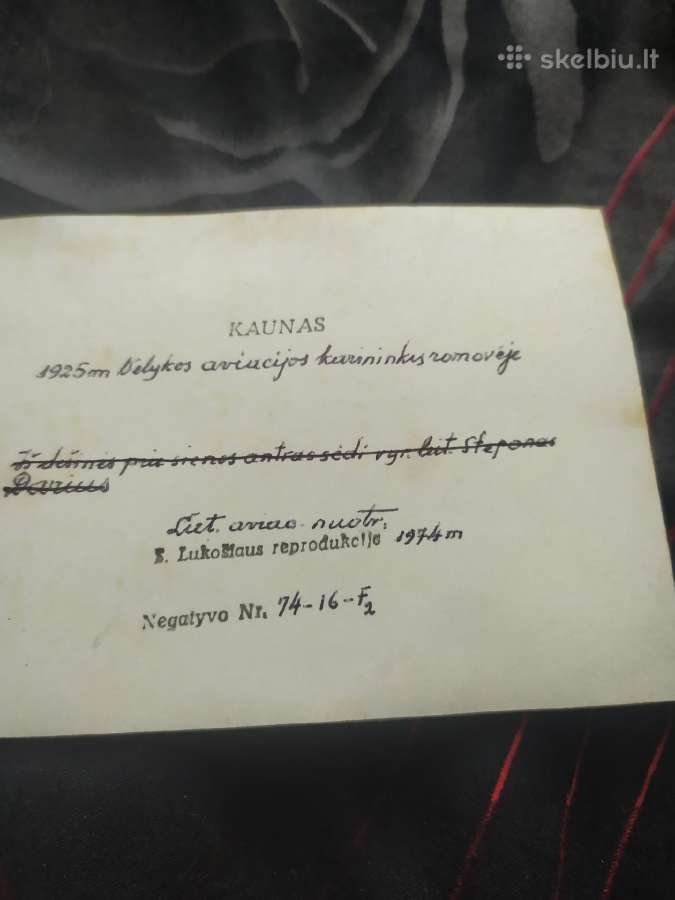 skelbiu.lt
KAUNAS
1925m Velykos aviacijos karininkų romovėje
Iš dešinės prie sienos antras sėdi vyr. leit. Steponas
Darius
Liet. aviac. nuotr.
S. Lukošiaus reprodukcija 1974m
Negatyvo Nr. 74-16-F2